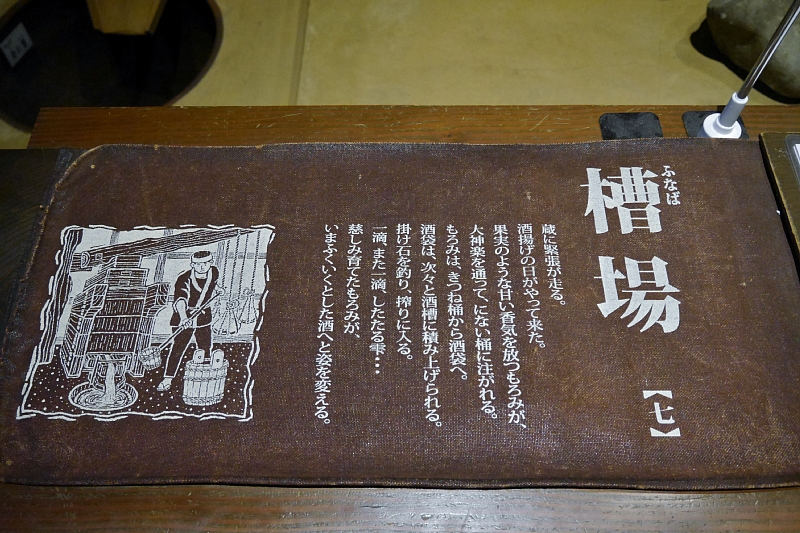 ふなば
槽場
【七】
蔵に緊張が走る。
酒揚げの日がやって来た。
果実のような甘い香気を放つもろみが、
大神楽を通って、にない桶に注がれる。
もろみは、きつね桶から酒袋へ。
酒袋は、次々と酒槽に積み上げられる。
掛け石を釣り、搾りに入る。
一滴、また一滴、したたる雫…
慈しみ育てたもろみが、
いまふくいくとした酒へと姿を変える。